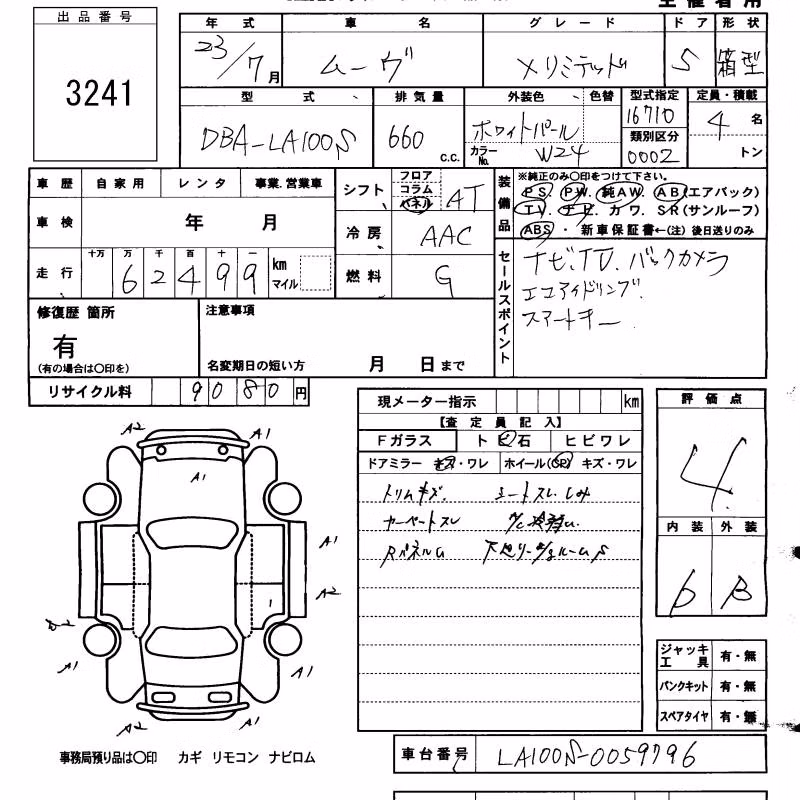 出品番号
3241
年式 車名 グレード ドア 形状
23/7月 ムーヴ Xリミテッド 5 箱型
型式 排気量 外装色 色替 型式指定 定員・積載
DBA-LA100S 660 c.c. ホワイトパール 16710 4 名
カラーNo. W24 類別区分 0002 トン
車歴 自家用 レンタ 事業.営業車
シフト フロア コラム パネル AT
装備品 ※純正のみ〇印をつけて下さい。
PS. PW. 純AW. AB(エアバック)
TV. ナビ. カワ. SR(サンルーフ)
ABS・新車保証書←(注) 後日送りのみ
車検 年 月
冷房 AAC
走行 十万 万 千 百 十 一
62499 km マイル
燃料 G
セールスポイント
ナビ.TV.バックカメラ
エコアイドリング.
スマートキー
修復歴 箇所
有
(有の場合は〇印を)
注意事項
名変期日の短い方 月 日まで
リサイクル料 9080円
現メーター指示 km
【査定員記入】
Fガラス ト ビ 石 ヒビワレ
ドアミラー キズ・ワレ ホイール(CP) キズ・ワレ
トリムキズ. シートスレ.しみ
カーペットスレ A/C冷弱い.
評価点
4
内装 外装
B
A2 A1
A1
A1
A2
1
A1 A1
A2 A1
ジャッキ工具 有・無
パンクキット 有・無
スペアタイヤ 有・無
事務局預り品は〇印 カギ リモコン ナビロム
車台番号 LA100S-0059796